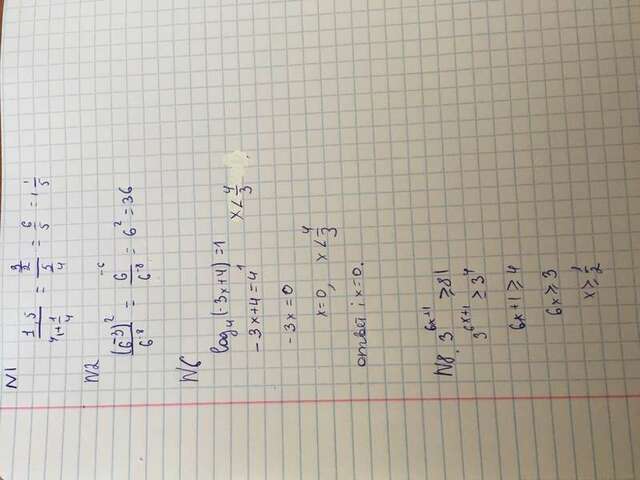 N1
1,5 / (1 + 1/4) = (3/2) / (5/4) = 6/5 = 1 1/5
N2
(6⁻³)² / 6⁻⁸ = 6⁻⁶ / 6⁻⁸ = 6² = 36
N6
log₄(-3x+4)=1
-3x+4=4¹ x<4/3
-3x=0
x=0, x<4/3
ответ: x=0.
N8. 3⁶ˣ⁺¹ ≥81
3⁶ˣ⁺¹ ≥ 3⁴
6x+1 ≥ 4
6x ≥ 3
x ≥ 1/2